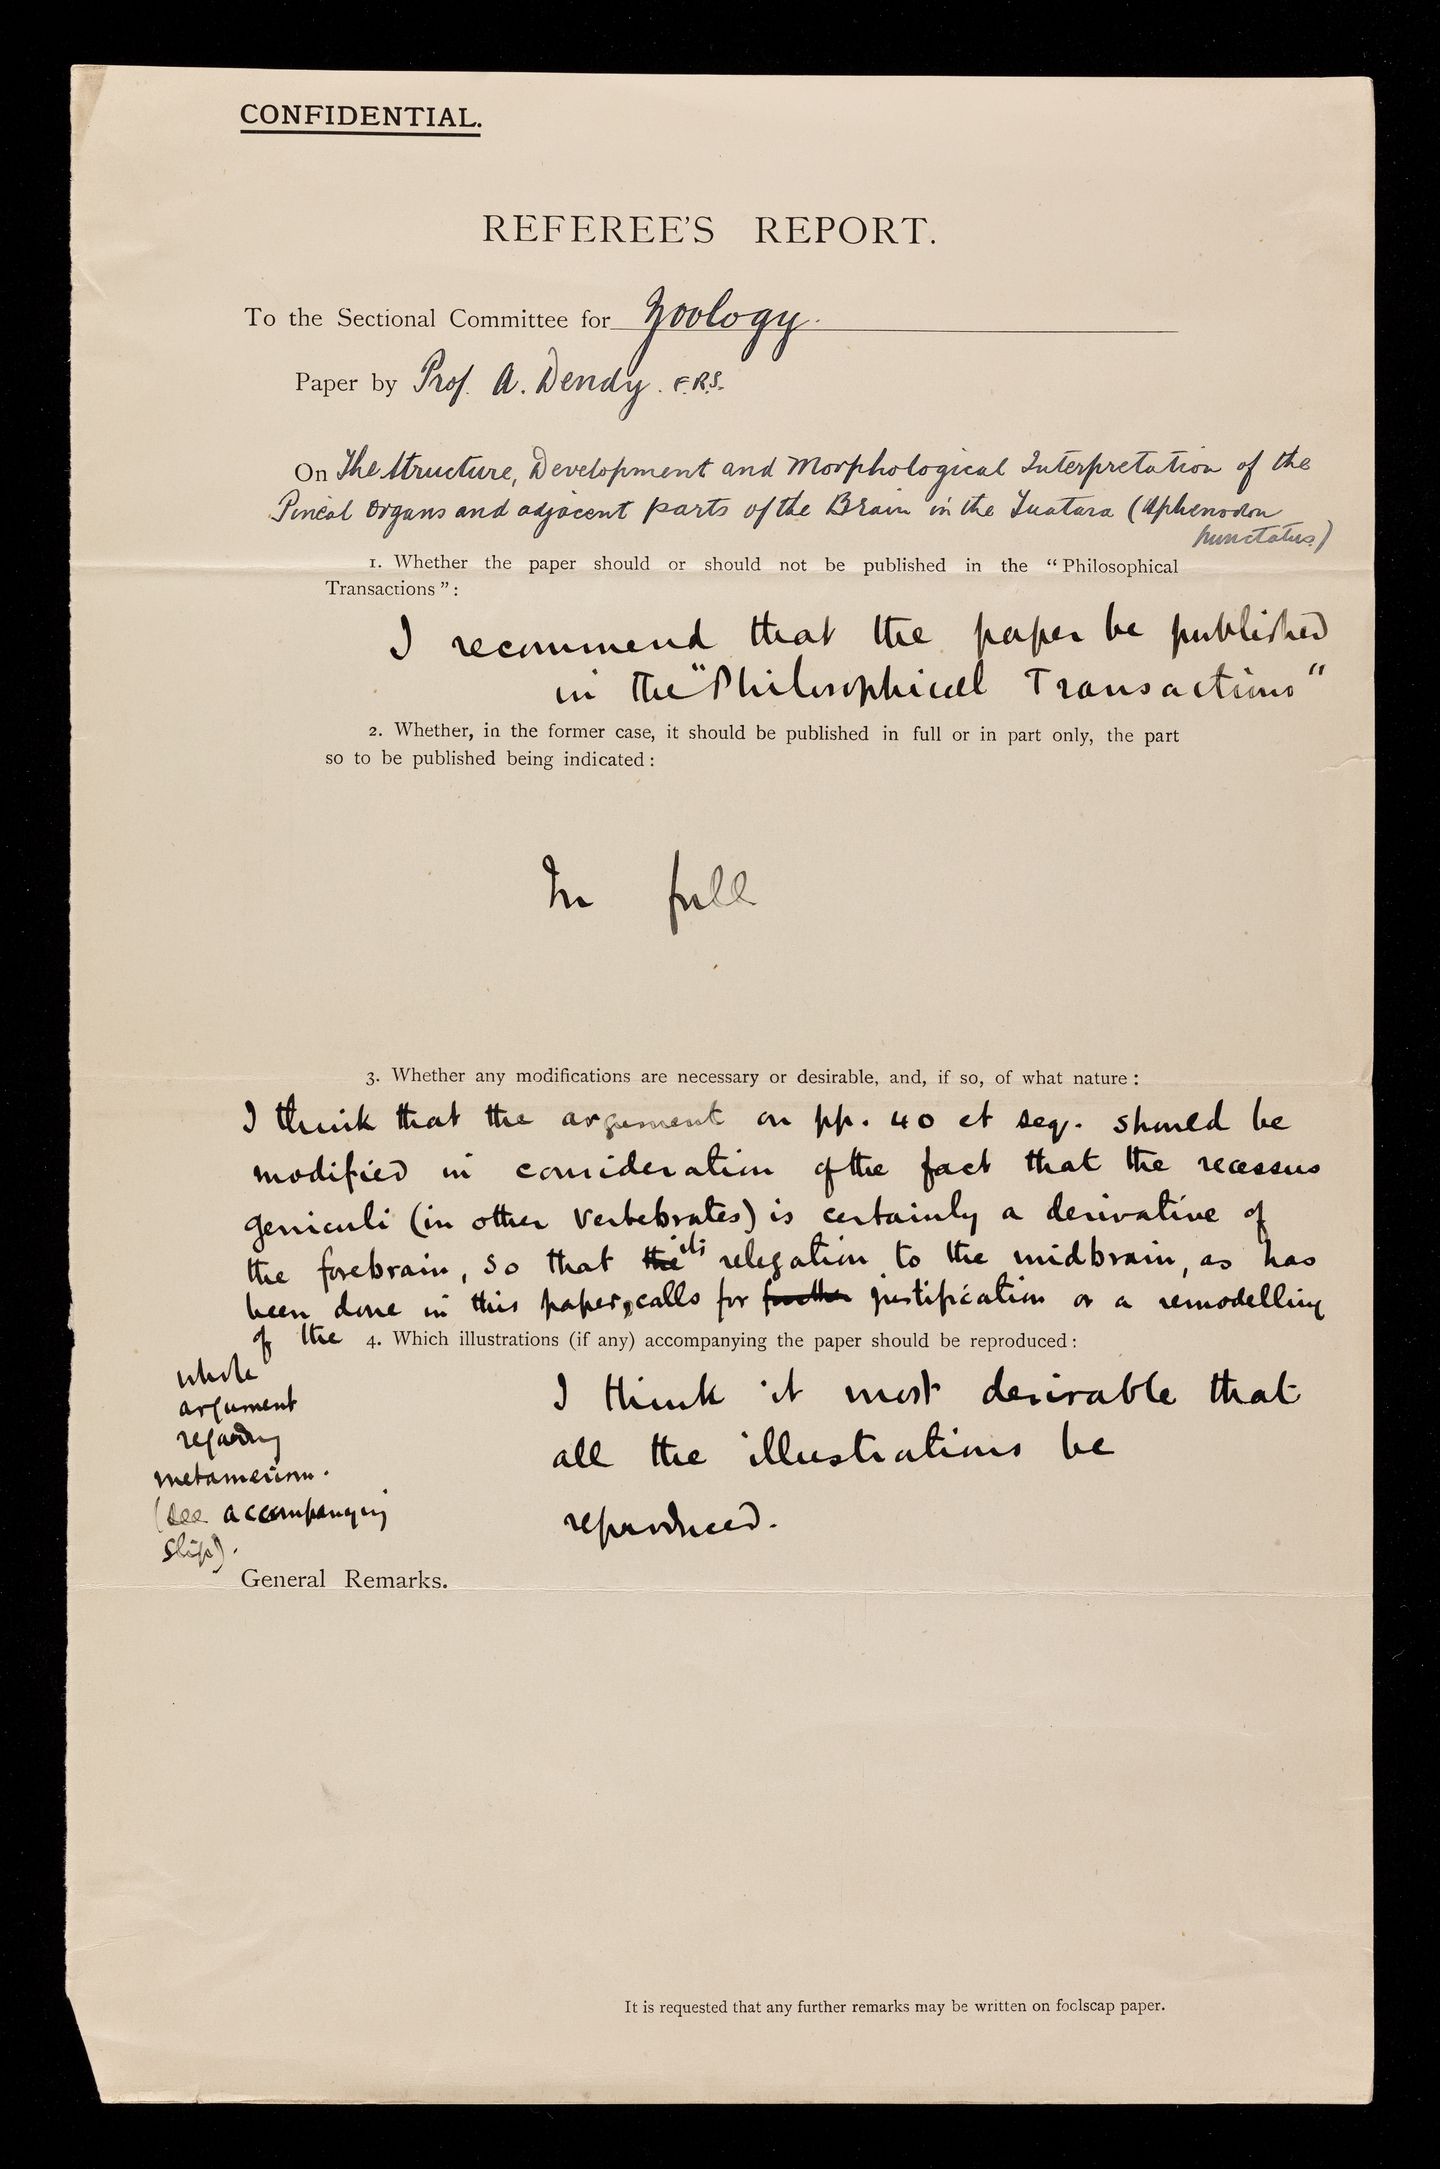 CONFIDENTIAL.
REFEREE'S REPORT.
To the Sectional Committee for Zoology.
Paper by Prof. A. Dendy. F.R.S.
On The Structure, Development and Morphological Interpretation of the
Pineal Organs and adjacent parts of the Brain in the Tuatara (Sphenodon
punctatus.)
1. Whether the paper should or should not be published in the "Philosophical
Transactions":
I recommend that the paper be published
in the "Philosophical Transactions"
2. Whether, in the former case, it should be published in full or in part only, the part
so to be published being indicated:
In full
3. Whether any modifications are necessary or desirable, and, if so, of what nature:
I think that the argument on pp. 40 et seq. should be
modified in consideration of the fact that the recessus
geniculi (in other Vertebrates) is certainly a derivative of
the forebrain, so that the its relegation to the midbrain, as has
been done in this paper, calls for further justification or a remodelling
of the
4. Which illustrations (if any) accompanying the paper should be reproduced:
whole
argument
regarding
metamerism.
(see accompanying
slip).
I think it most desirable that
all the illustrations be
reproduced.
General Remarks.
It is requested that any further remarks may be written on foolscap paper.